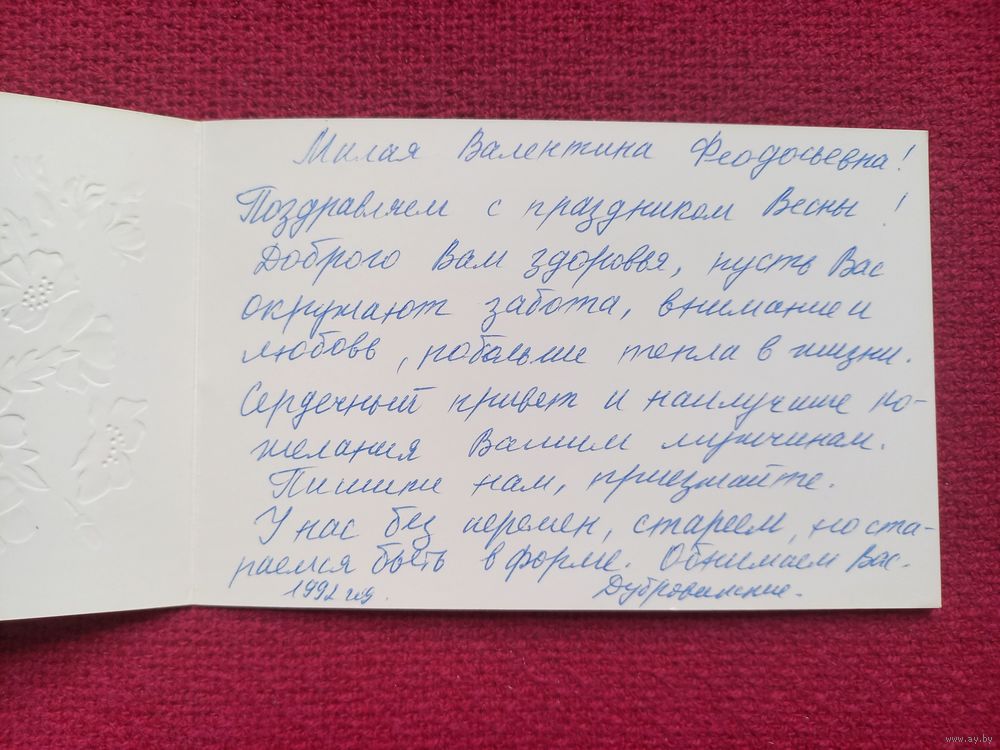 Милая Валентина Феодосьевна!
Поздравляем с праздником Весны!
Доброго Вам здоровья, пусть Вас
окружают забота, внимание и
любовь, побольше тепла в жизни.
Сердечный привет и наилучшие по-
желания Вашим мужчинам.
Пишите нам, приезжайте.
У нас без перемен, стареем, но ста-
раемся быть в форме. Обнимаем Вас.
1992 год. Дубровинские.
www.ay.by